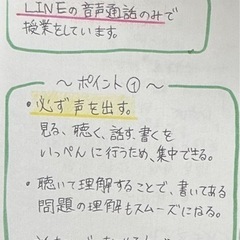 LINEの音声通話のみで
授業をしています。
〜ポイント①〜
・必ず声を出す。
見る、聴く、話す、書くを
いっぺんに行うため、集中できる。
・聴いて理解することで、書いてある
問題の理解もスムーズになる。